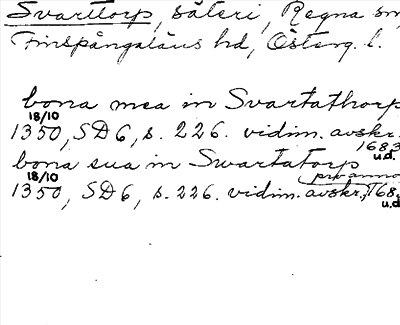 Svarttorp, säteri, Regna sn
Finspångaläns hd, Österg. l.
bona mea in Svartathorp
18/10
1350, SD 6, s. 226. vidim. avskr.
1683
u.d.
bona sua in Swartatorp
18/10
1350, SD 6, s. 226. vidim. avskr., 168
u.d.